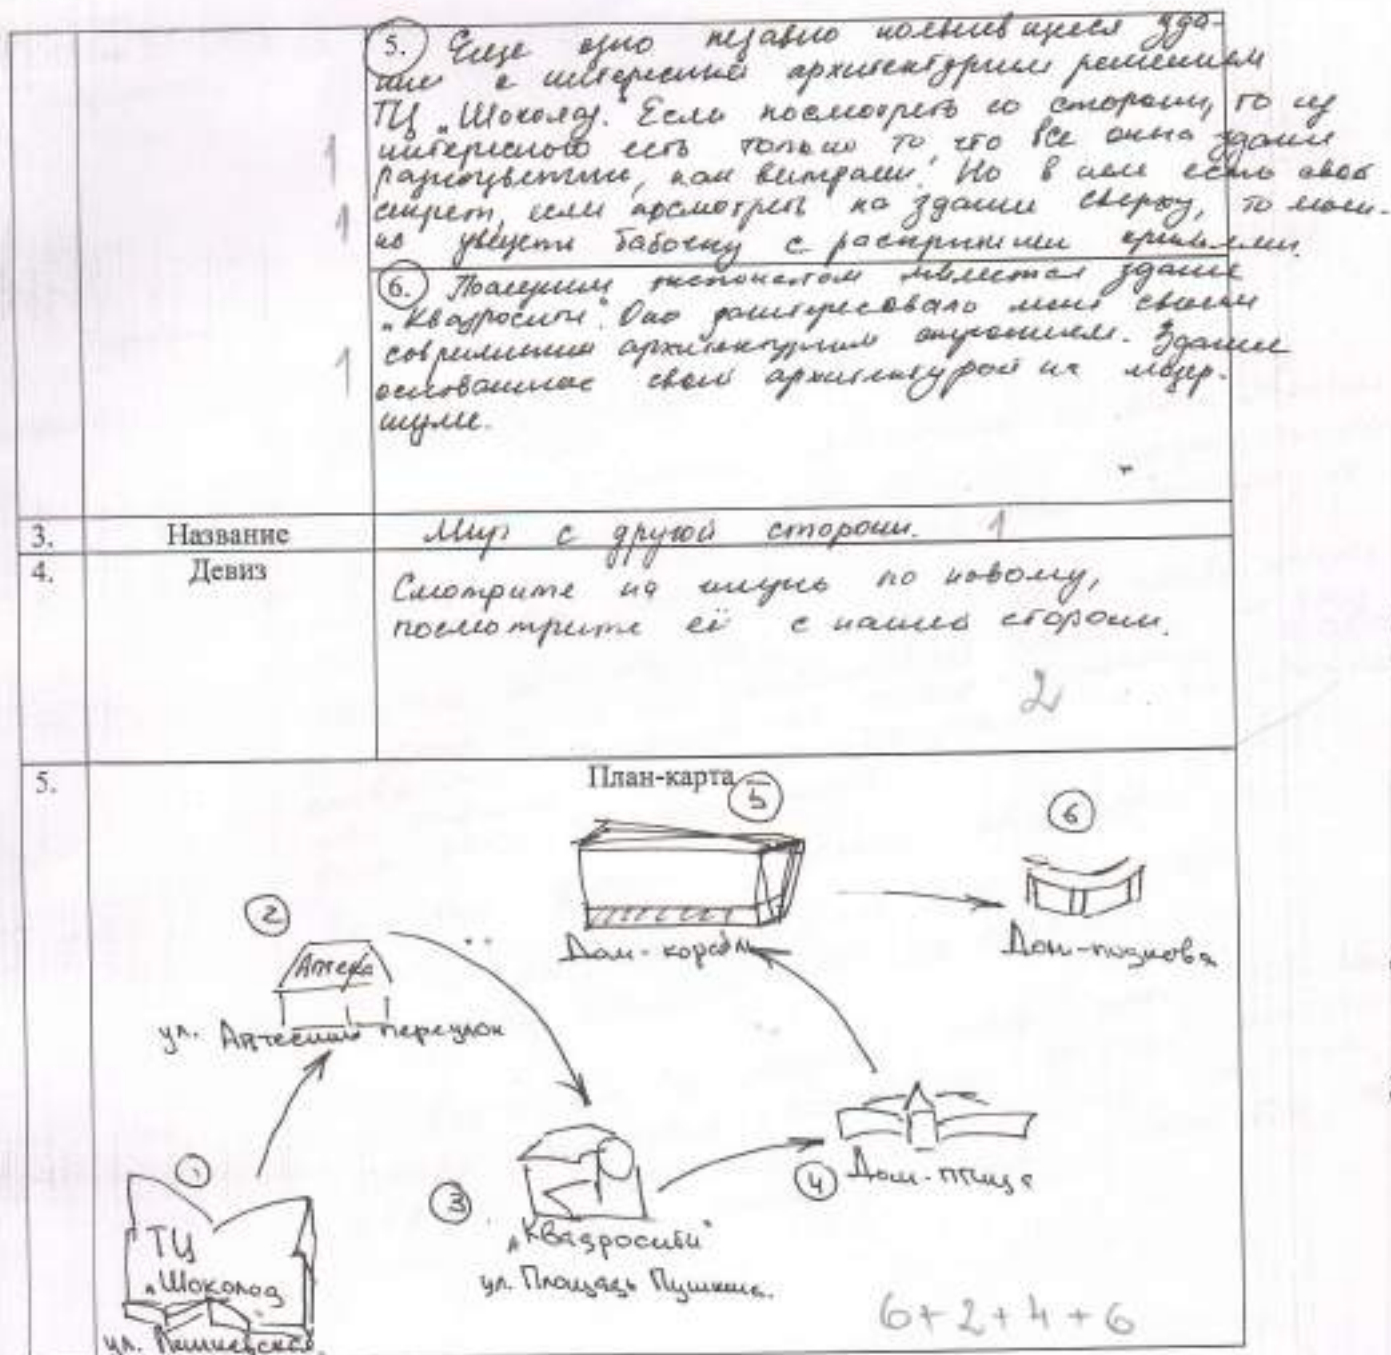 5. Еще одно недавно появившееся зда-
ние с интересным архитектурным решением
ТЦ „Шоколад". Если посмотреть со стороны, то из
интересного есть только то, что все окна здания
разноцветные, как витражи. Но в нем есть свой
1
секрет, если посмотреть на здание сверху, то мож-
1
но увидеть бабочку с раскрытыми крыльями.
6. является здание
„Квадросити". Оно заинтересовало меня своим
современным архитектурным строением. Здание
1
основанное своей архитектурой на
3. Название Мир с другой стороны. 1
4. Девиз Смотрите на по новому,
посмотрите её с нашей стороны.
2
5. План-карта
5
6
2
Аптека
Дом-корабль
Дом-подкова
ул. Аптечный переулок
1
3
4 Дом-птица
ТЦ
„Шоколад
„Квадросити"
ул. Площадь Пушкина.
6+2+4+6
ул.